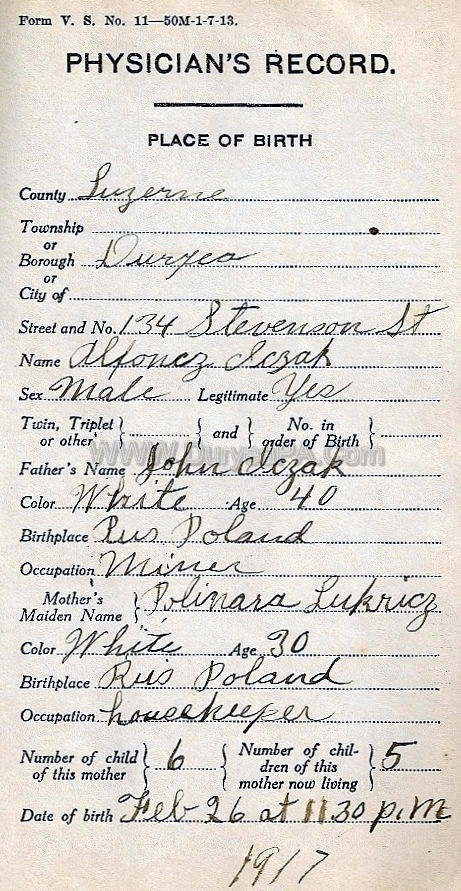 Form V. S. No. 11—50M-1-7-13.
PHYSICIAN'S RECORD.
PLACE OF BIRTH
County Luzerne
Township
or
Borough Duryea
or
City of
Street and No. 134 Stevenson St
Name Alfoncz Iczak
Sex Male Legitimate Yes
Twin, Triplet or other } { and } No. in order of Birth }
www.DuryeaPA.com
Father's Name John Iczak
Color White Age 40
Birthplace Rus Poland
Occupation Miner
Mother's Maiden Name } Polinara Lukricz
Color White Age 30
Birthplace Rus Poland
Occupation housekeeper
Number of child of this mother } 6 { Number of children of this mother now living } 5
Date of birth Feb 26 at 11 30 p.m
1917